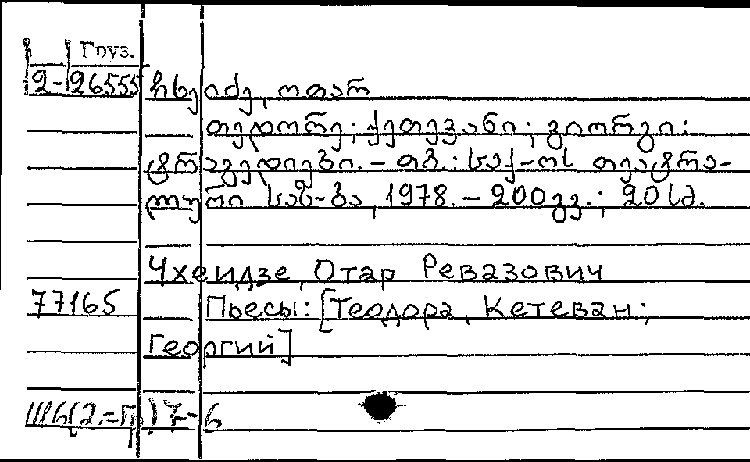 Груз.
2-26555 ჩხეიძე, ოთარ
თედორე; ქეთევანი; გიორგი:
ტრაგედიები. - თბ.: საქ-ოს თეატრა-
ლური საზ-ბა, 1978. - 200გვ.; 20სმ.
Чхеидзе, Отар Ревазович
77165 Пьесы: [Теодора, Кетеван;
Георгий]
Ш6(2=Гр)7-6